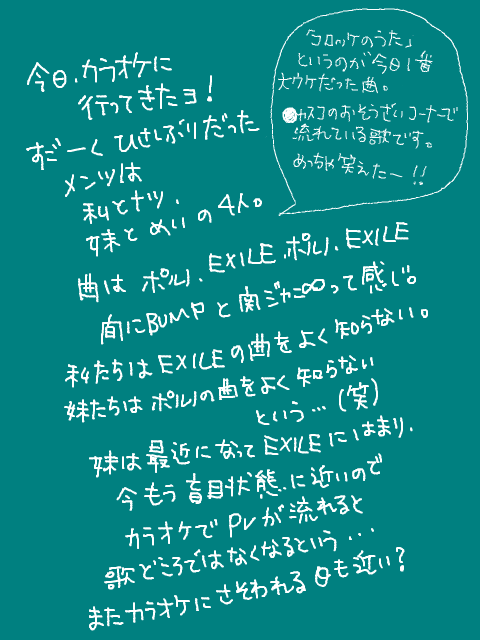 今日、カラオケに
行ってきたヨ!
すだーく ひさしぶりだった
メンツは
私とナツ、
妹と めい の 4人。
曲は ポルノ、EXILE、ポルノ、EXILE
間にBUMPと関ジャニ∞って感じ。
私たちはEXILEの曲をよく知らない。
妹たちはポルノの曲をよく知らない
という…(笑)
妹は最近になってEXILEにはまり、
今もう盲目状態に近いので
カラオケでPVが流れると
歌どころではなくなるという・・・
またカラオケにさそわれる日も近い?
「コロッケのうた」
というのが今日1番
大ウケだった曲。
●ャスコのおそうざいコーナーで
流れている歌です。
めっちゃ笑えたー!!